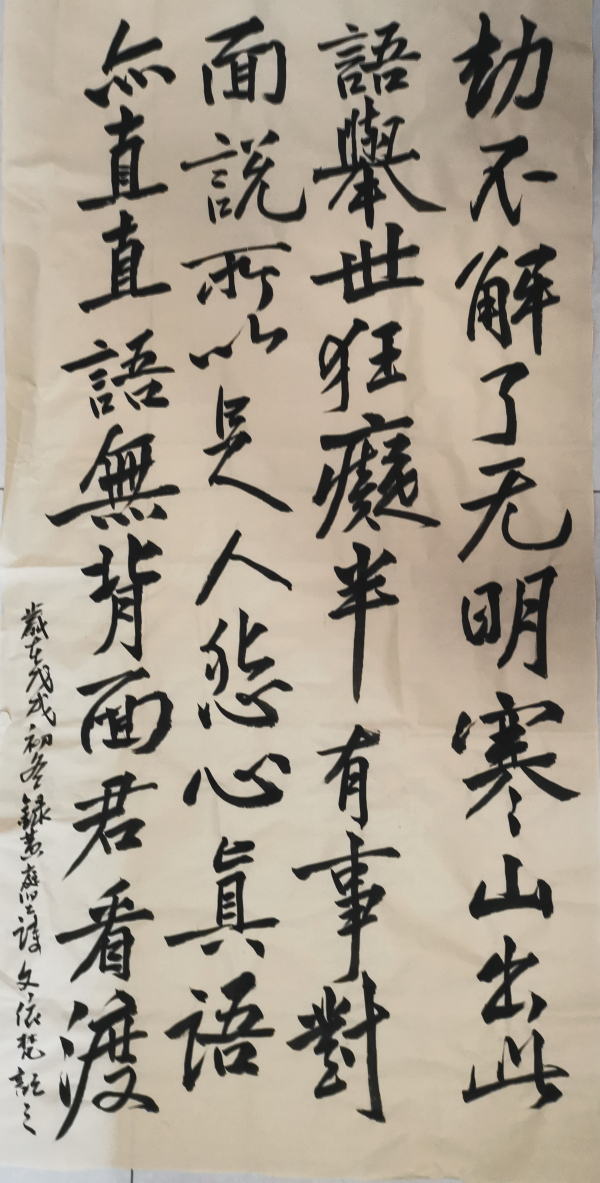 劫不解了无明寒山出此
語舉世狂癡半有事對
面說所以足人怨心眞語
亦直直語無背面君看渡
歲在戊戌初冬錄黄庭坚詩 文依梵記之